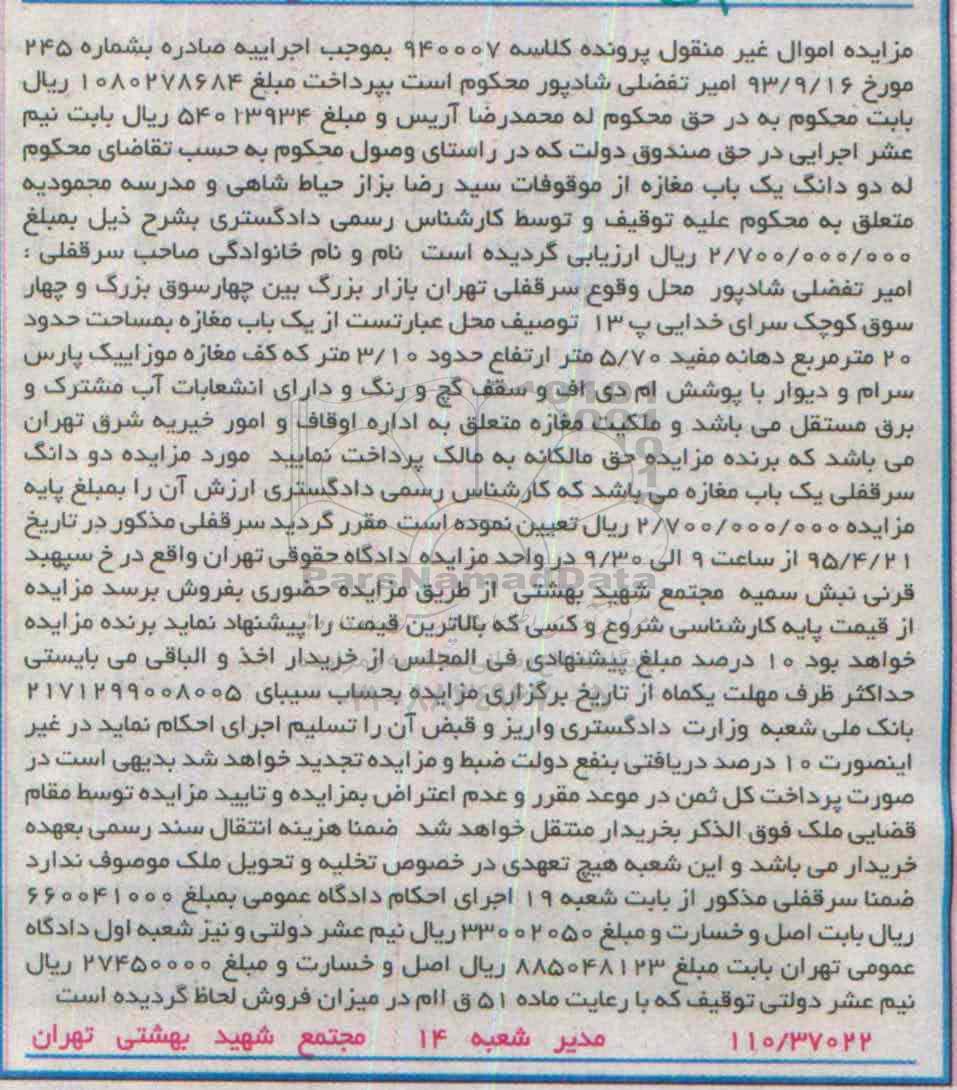 مزایده اموال غیر منقول پرونده کلاسه ۹۴۰۰۰۷ بموجب اجراییه صادره بشماره ۲۴۵
مورخ ۹۳/۹/۱۶ امیر تفضلی شادپور محکوم است بپرداخت مبلغ ۱۰۸۰۲۷۸۶۸۴ ریال
بابت محکوم به در حق محکوم له محمدرضا آریس و مبلغ ۵۴۰۱۳۹۳۴ ریال بابت نیم
عشر اجرایی در حق صندوق دولت که در راستای وصول محکوم به حسب تقاضای محکوم
له دو دانگ یک باب مغازه از موقوفات سید رضا بزاز حیاط شاهی و مدرسه محمودیه
متعلق به محکوم علیه توقیف و توسط کارشناس رسمی دادگستری بشرح ذیل بمبلغ
۲/۷۰۰/۰۰۰/۰۰۰ ریال ارزیابی گردیده است نام و نام خانوادگی صاحب سرقفلی :
امیر تفضلی شادپور محل وقوع سرقفلی تهران بازار بزرگ بین چهارسوق بزرگ و چهار
سوق کوچک سرای خدایی پ ۱۳ توصیف محل عبارتست از یک باب مغازه بمساحت حدود
۲۰ مترمربع دهانه مفید ۵/۷۰ متر ارتفاع حدود ۳/۱۰ متر که کف مغازه موزاییک پارس
سرام و دیوار با پوشش ام دی اف و سقف گچ و رنگ و دارای انشعابات آب مشترک و
برق مستقل می باشد و ملکیت مغازه متعلق به اداره اوقاف و امور خیریه شرق تهران
می باشد که برنده مزایده حق مالکانه به مالک پرداخت نمایید مورد مزایده دو دانگ
سرقفلی یک باب مغازه می باشد که کارشناس رسمی دادگستری ارزش آن را بمبلغ پایه
مزایده ۲/۷۰۰/۰۰۰/۰۰۰ ریال تعیین نموده است مقرر گردید سرقفلی مذکور در تاریخ
۹۵/۴/۲۱ از ساعت ۹ الی ۹/۳۰ در واحد مزایده دادگاه حقوقی تهران واقع در خ سپهبد
قرنی نبش سمیه مجتمع شهید بهشتی از طریق مزایده حضوری بفروش برسد مزایده
از قیمت پایه کارشناسی شروع و کسی که بالاترین قیمت را پیشنهاد نماید برنده مزایده
خواهد بود ۱۰ درصد مبلغ پیشنهادی فی المجلس از خریدار اخذ و الباقی می بایستی
حداکثر ظرف مهلت یکماه از تاریخ برگزاری مزایده بحساب سیبای ۲۱۷۱۲۹۹۰۰۸۰۰۵
بانک ملی شعبه وزارت دادگستری واریز و قبض آن را تسلیم اجرای احکام نماید در غیر
اینصورت ۱۰ درصد دریافتی بنفع دولت ضبط و مزایده تجدید خواهد شد بدیهی است در
صورت پرداخت کل ثمن در موعد مقرر و عدم اعتراض بمزایده و تایید مزایده توسط مقام
قضایی ملک فوق الذکر بخریدار منتقل خواهد شد ضمنا هزینه انتقال سند رسمی بعهده
خریدار می باشد و این شعبه هیچ تعهدی در خصوص تخلیه و تحویل ملک موصوف ندارد
ضمنا سرقفلی مذکور از بابت شعبه ۱۹ اجرای احکام دادگاه عمومی بمبلغ ۶۶۰۰۴۱۰۰۰
ریال بابت اصل و خسارت و مبلغ ۳۳۰۰۲۰۵۰ ریال نیم عشر دولتی و نیز شعبه اول دادگاه
عمومی تهران بابت مبلغ ۸۸۵۰۴۸۱۲۳ ریال اصل و خسارت و مبلغ ۲۷۴۵۰۰۰۰ ریال
نیم عشر دولتی توقیف که با رعایت ماده ۵۱ ق اام در میزان فروش لحاظ گردیده است
۱۱۰/۳۷۰۲۲ مدیر شعبه ۱۴ مجتمع شهید بهشتی تهران
ParsNamadData